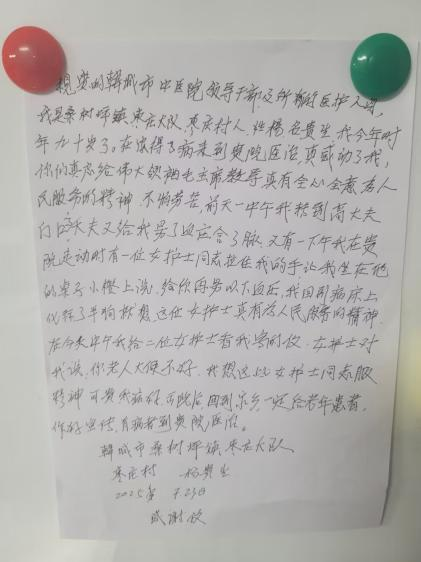 亲爱的韩城市中医院领导干部及所有的医护人员,
我是桑树坪镇枣庄大队枣庄村人,姓杨,名贵生我今年时
年九十岁了。在得了病来到贵院医治,真感动了我,
你们真忠给伟大领袖毛主席教导真有全心全意为人
民服务的精神,不怕劳苦,前天一中午我转到高大夫
门口大夫又给我号了血压合了脉,又有一下午我在贵
院走动时有一位女护士同志拉住我的手让我坐在他
的桌子小橙上说,给你再号以下血压,我回到病床上
我想,这位女护士真有为人民服务的精神
在今天中午我给二位女护士看我写的仪,女护士对
我说,你老人大便不好,我想这些女护士同志服
精神可贵我病好,出院后,回到家乡一定给老年患者,
作好宣传,有病者到贵院医治。
韩城市桑树坪镇枣庄大队
枣庄村 杨贵生
2025年 7.23日
感谢仪